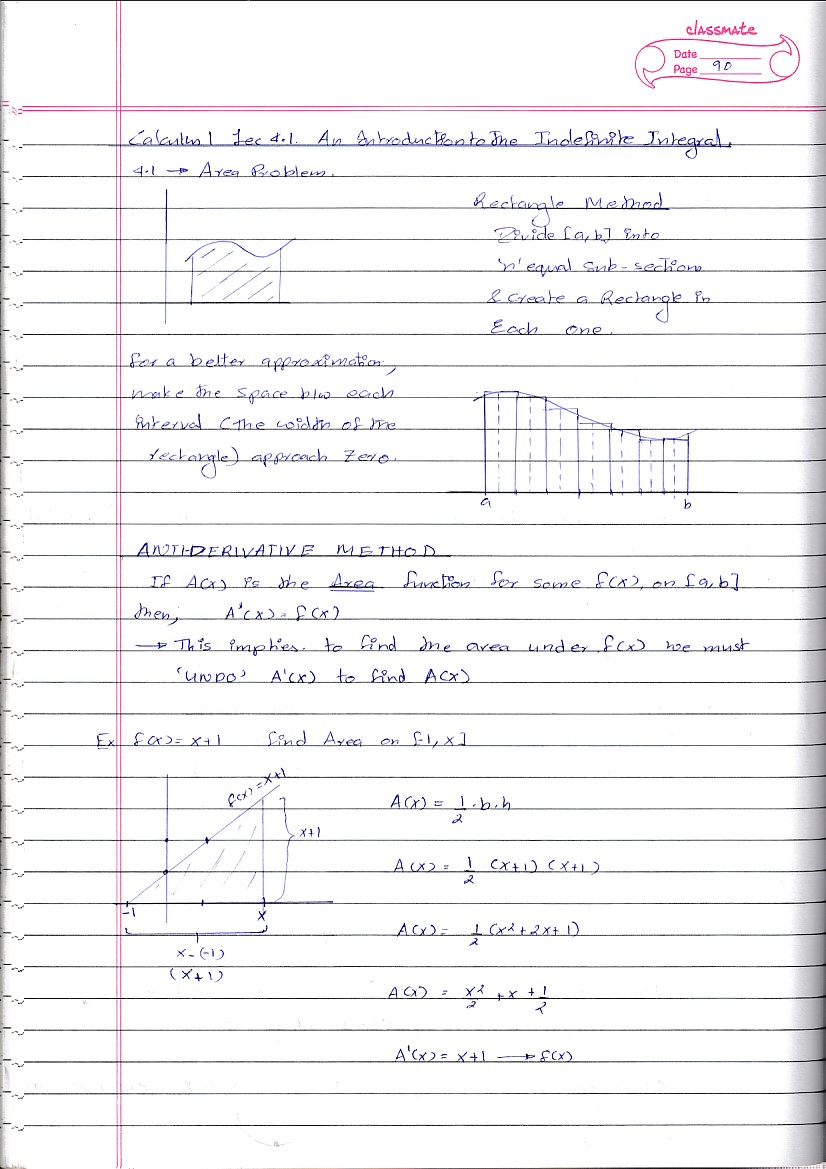 classmate
Date
Page 90
Calculus 1 Lec 4.1. An Introduction to The Indefinite Integral.
4.1 → Area Problem.
Rectangle Method
Divide [a,b] into
'n' equal sub-sections
& create a Rectangle in
Each one.
for a better approximation,
make the space b/w each
interval (the width of the
rectangle) approach zero.
a b
ANTI-DERIVATIVE METHOD
If A(x) is the Area function for some f(x), on [a,b]
then, A'(x) = f(x)
→ This implies. to find the area under f(x) we must
'UNDO' A'(x) to find A(x)
Ex f(x) = x+1 find Area on [-1, x]
f(x) = x+1
x+1
-1 x
x-(-1)
(x+1)
A(x) = 1/2 . b . h
A(x) = 1/2 (x+1) (x+1)
A(x) = 1/2 (x²+2x+1)
A(x) = x²/2 + x + 1/2
A'(x) = x+1 → f(x)